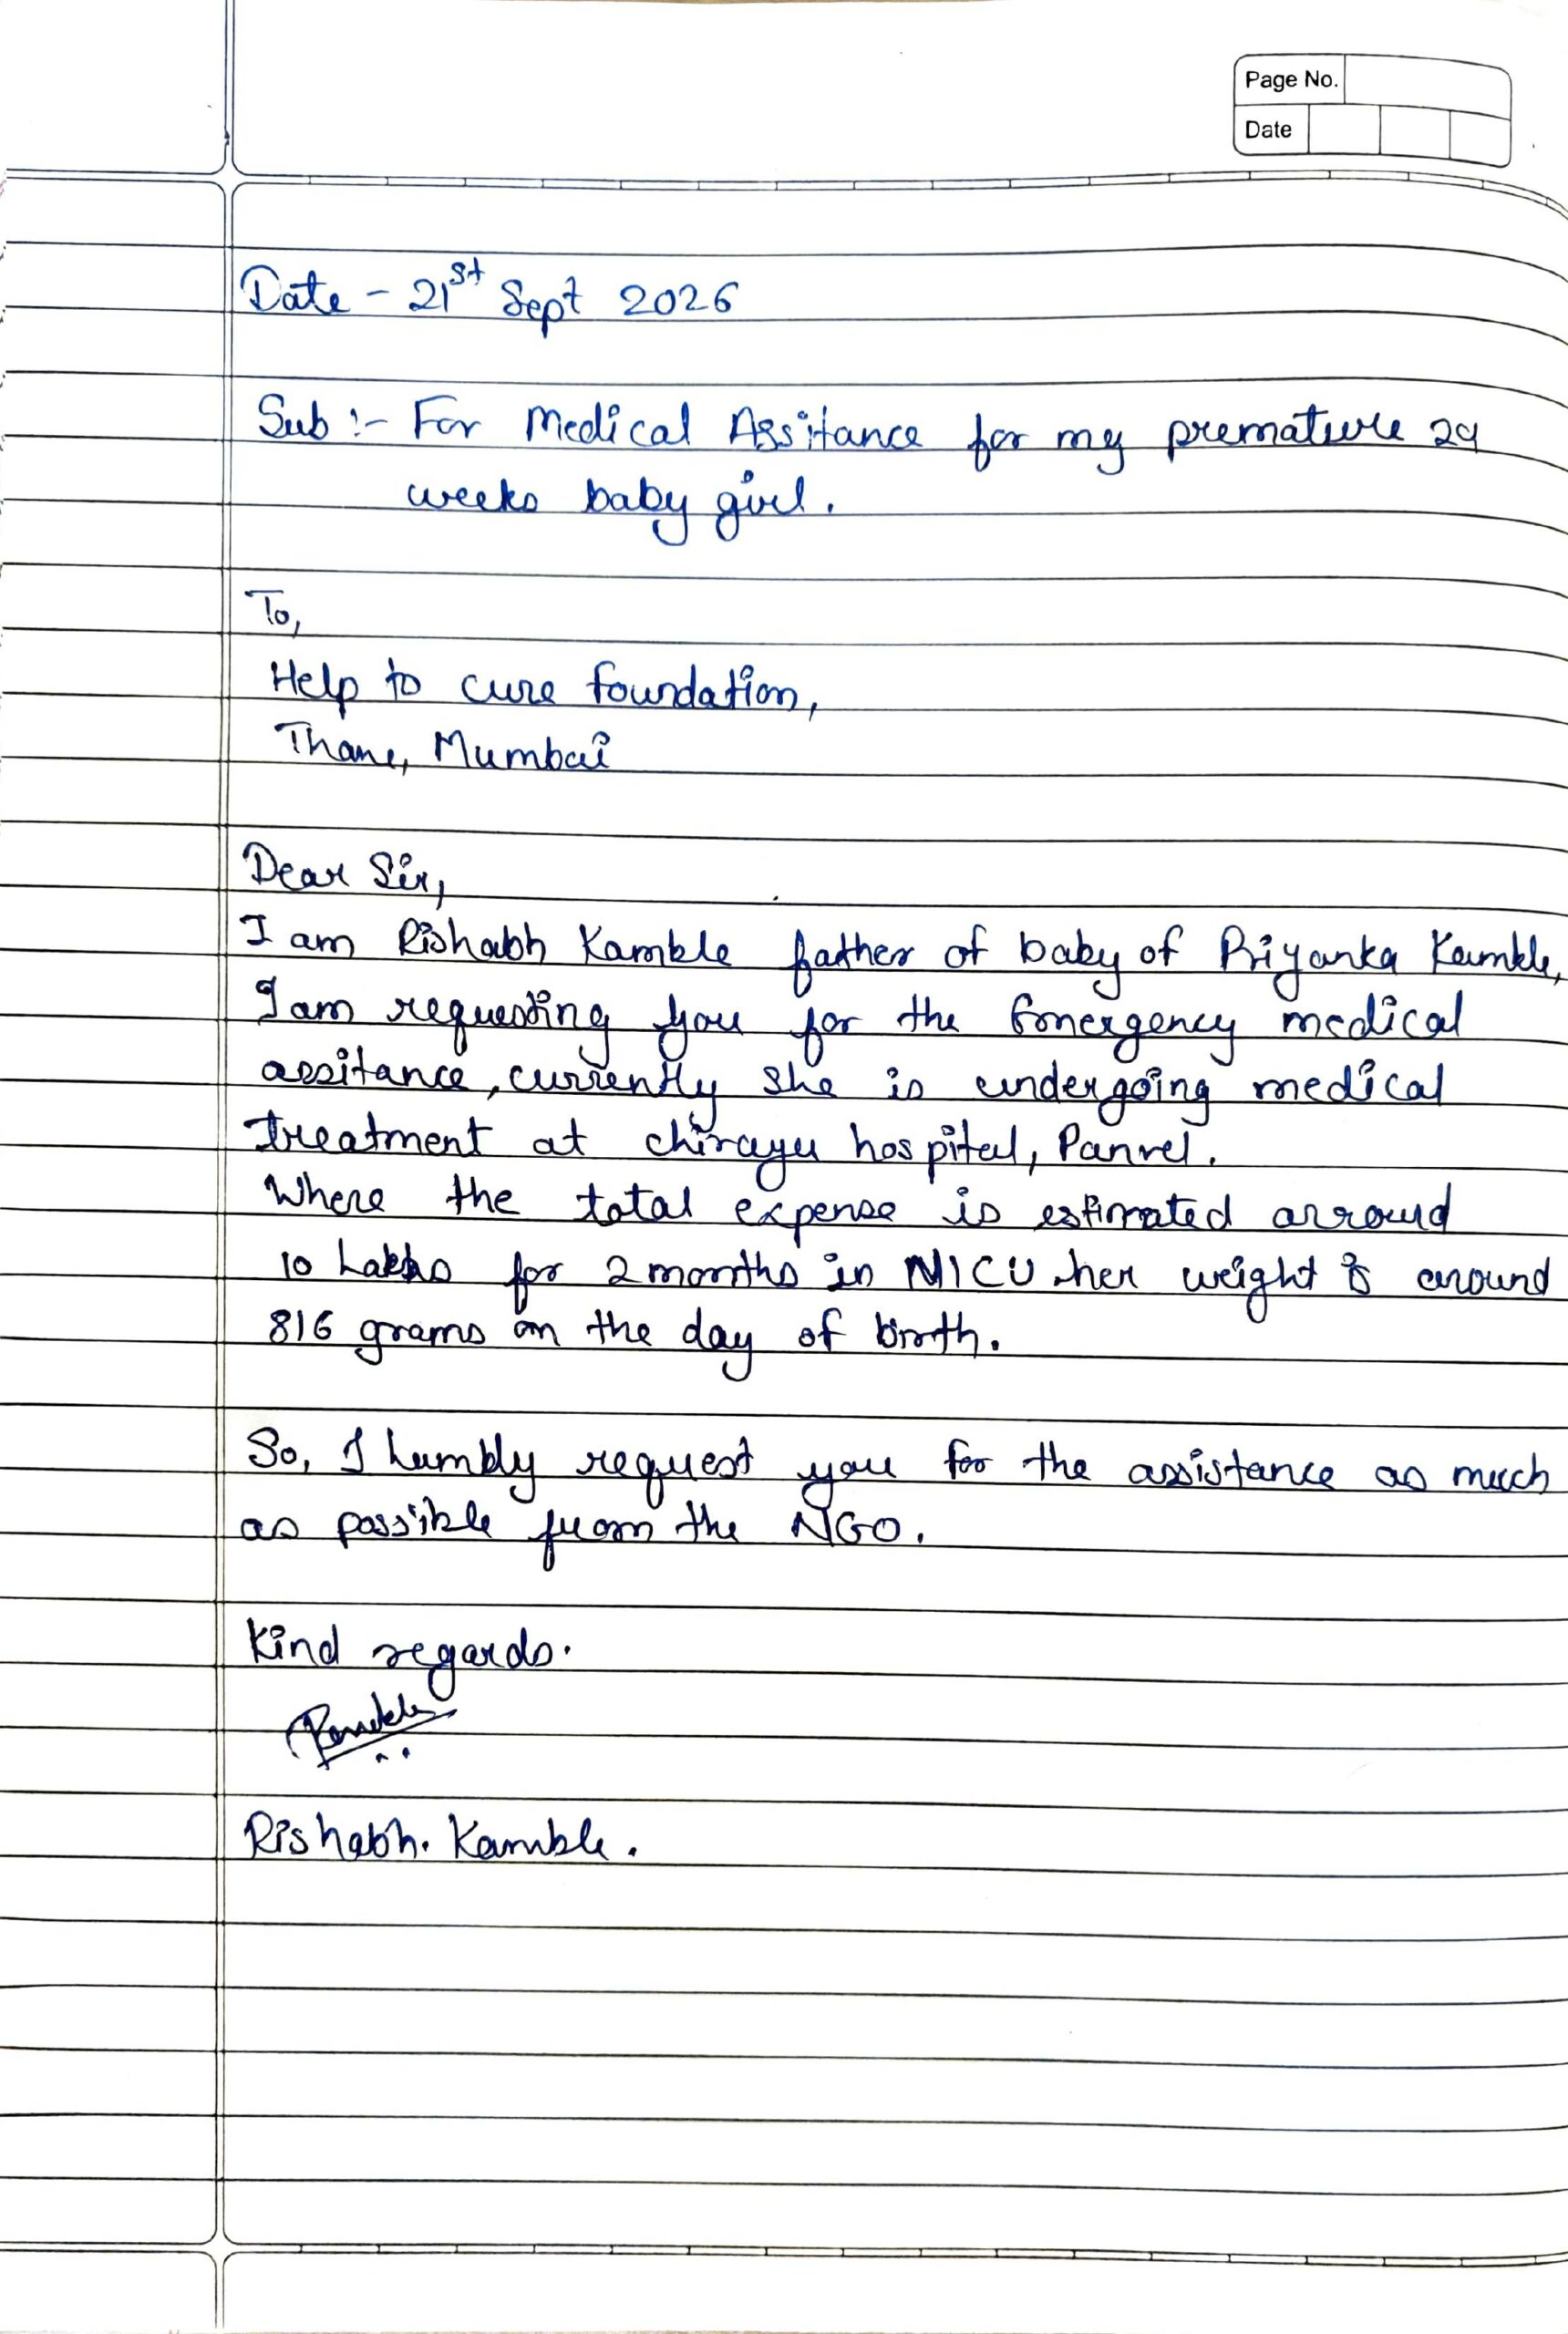 Page No.
Date
Date - 21st Sept 2026
Sub :- For Medical Assitance for my premature 29
weeks baby girl.
To,
Help to cure foundation,
Thane, Mumbai
Dear Sir,
I am Rishabh Kamble father of baby of Priyanka Kamble,
I am requesting you for the Emergency medical
assitance, currently she is undergoing medical
treatment at chirayu hospital, Panvel.
Where the total expense is estimated arround
10 Lakhs for 2 months in NICU her weight is around
816 grams on the day of birth.
So, I humbly request you for the assistance as much
as possible from the NGO.
Kind regards.
Rishabh. Kamble.